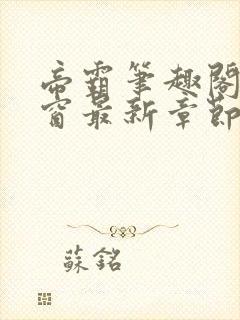 帝霸筆趣閣
窗最新章節
蘇銘